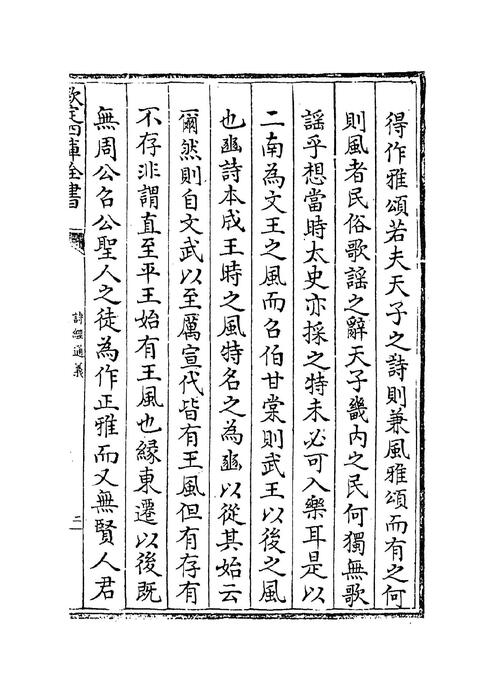 得作雅頌若夫天子之詩則兼風雅頌而有之何
則風者民俗歌謡之辭天子畿内之民何獨無歌
謡乎想當時太史亦採之特未必可入樂耳是以
二南為文王之風而召伯甘棠則武王以後之風
也豳詩本成王時之風特名之為豳以從其始云
爾然則自文武以至厲宣代皆有王風但有存有
不存非謂直至平王始有王風也縁東遷以後既
無周公召公聖人之徒為作正雅而又無賢人君
欽定四庫全書
詩經通義
二